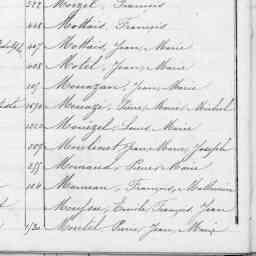 522 Morzel, Francois
448 Mottais, Francois
407 Mottais, Jean Marie
408 Motel, Jean Marie
Mouazan, Jean Marie
Mouazé, Pierre Marie Michel
Mouëzel, Louis Marie
Moulinet Jean Marie Joseph
255 Mouraud, Pierre Marie
104 Moureau, François, Mathurin
Emile François Jean
Moutel, Pierre Jean Marie